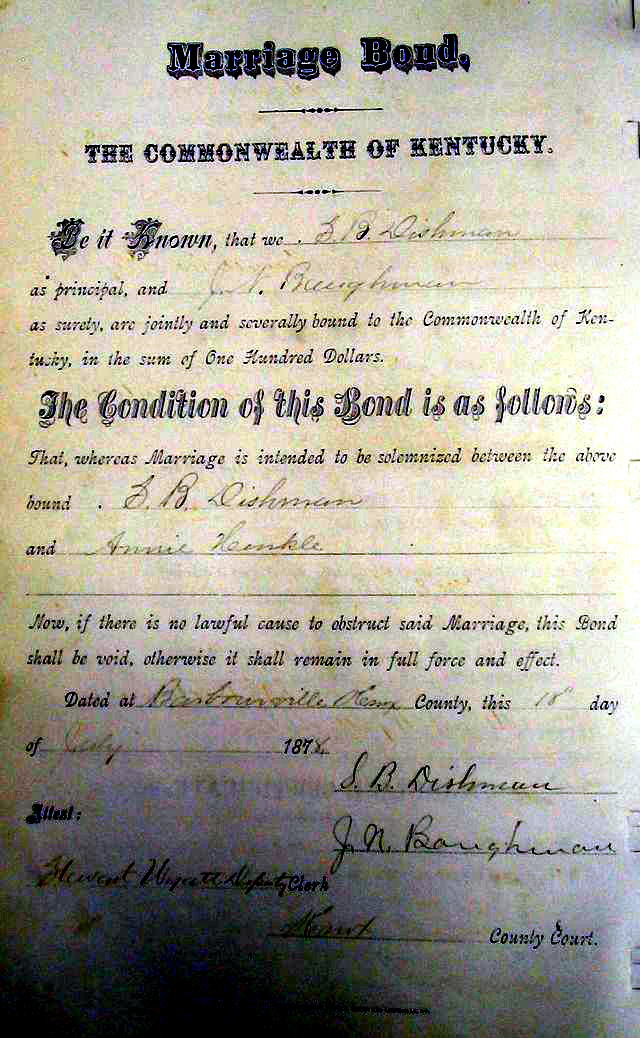 Marriage Bond.
THE COMMONWEALTH OF KENTUCKY.
Be it Known, that we S. B. Dishman
as principal, and J. N. Baughman
as surety, are jointly and severally bound to the Commonwealth of Ken-
tucky, in the sum of One Hundred Dollars.
The Condition of this Bond is as follows:
That, whereas Marriage is intended to be solemnized between the above
bound S. B. Dishman
and Annie Henkle
Now, if there is no lawful cause to obstruct said Marriage, this Bond
shall be void, otherwise it shall remain in full force and effect.
Dated at Barbourville Knox County, this 18" day
of July 1878
S. B. Dishman
Attest:
J. N. Baughman
Wyatt Deputy Clerk
Knox County Court.